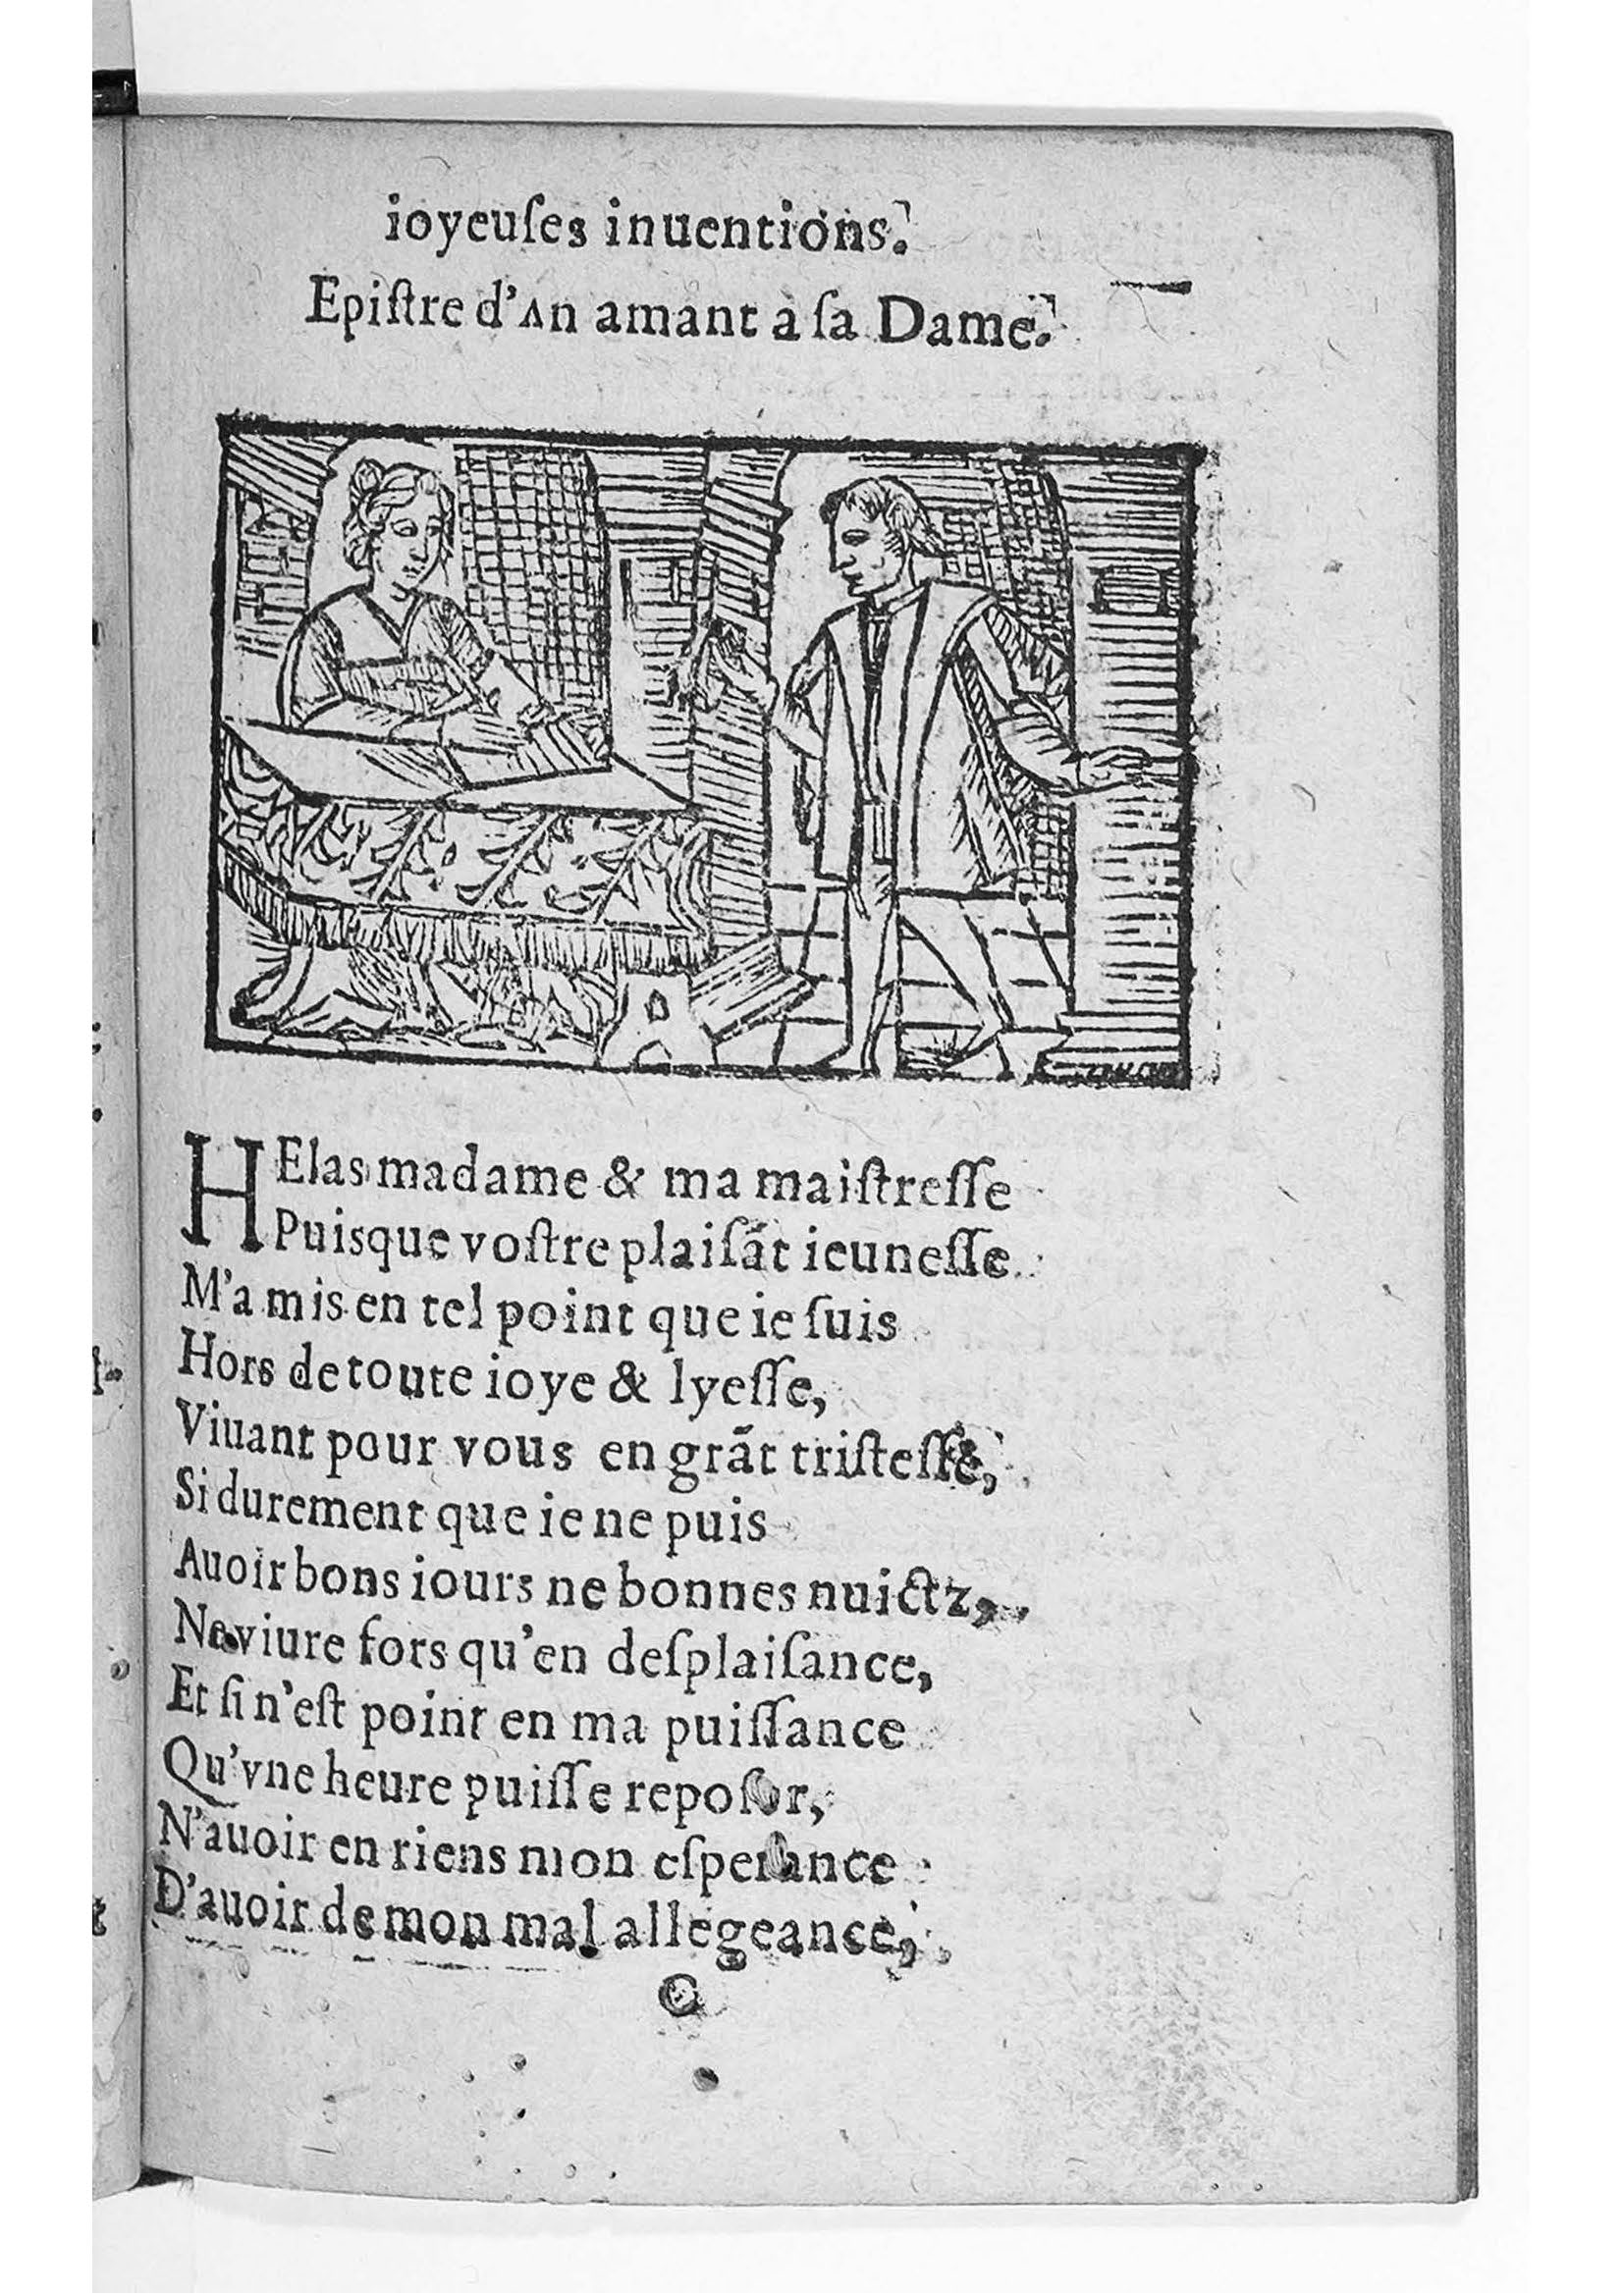 ioyeuſes inuentions.
Epiſtre d'vn amant à ſa Dame.
HElas madame & ma maiſtreſſe
Puisque voſtre plaiſāt ieuneſſe
M'a mis en tel point que ie ſuis
Hors de toute ioye & lyeſſe,
Viuant pour vous en grāt triſteſſe,
Si durement que ie ne puis
Auoir bons iours ne bonnes nuictz,
Ne viure fors qu'en deſplaiſance,
Et ſi n'eſt point en ma puiſſance
Qu'vne heure puiſſe repoſer,
N'auoir en riens mon eſperance
D'auoir de mon mal allegeance,
C